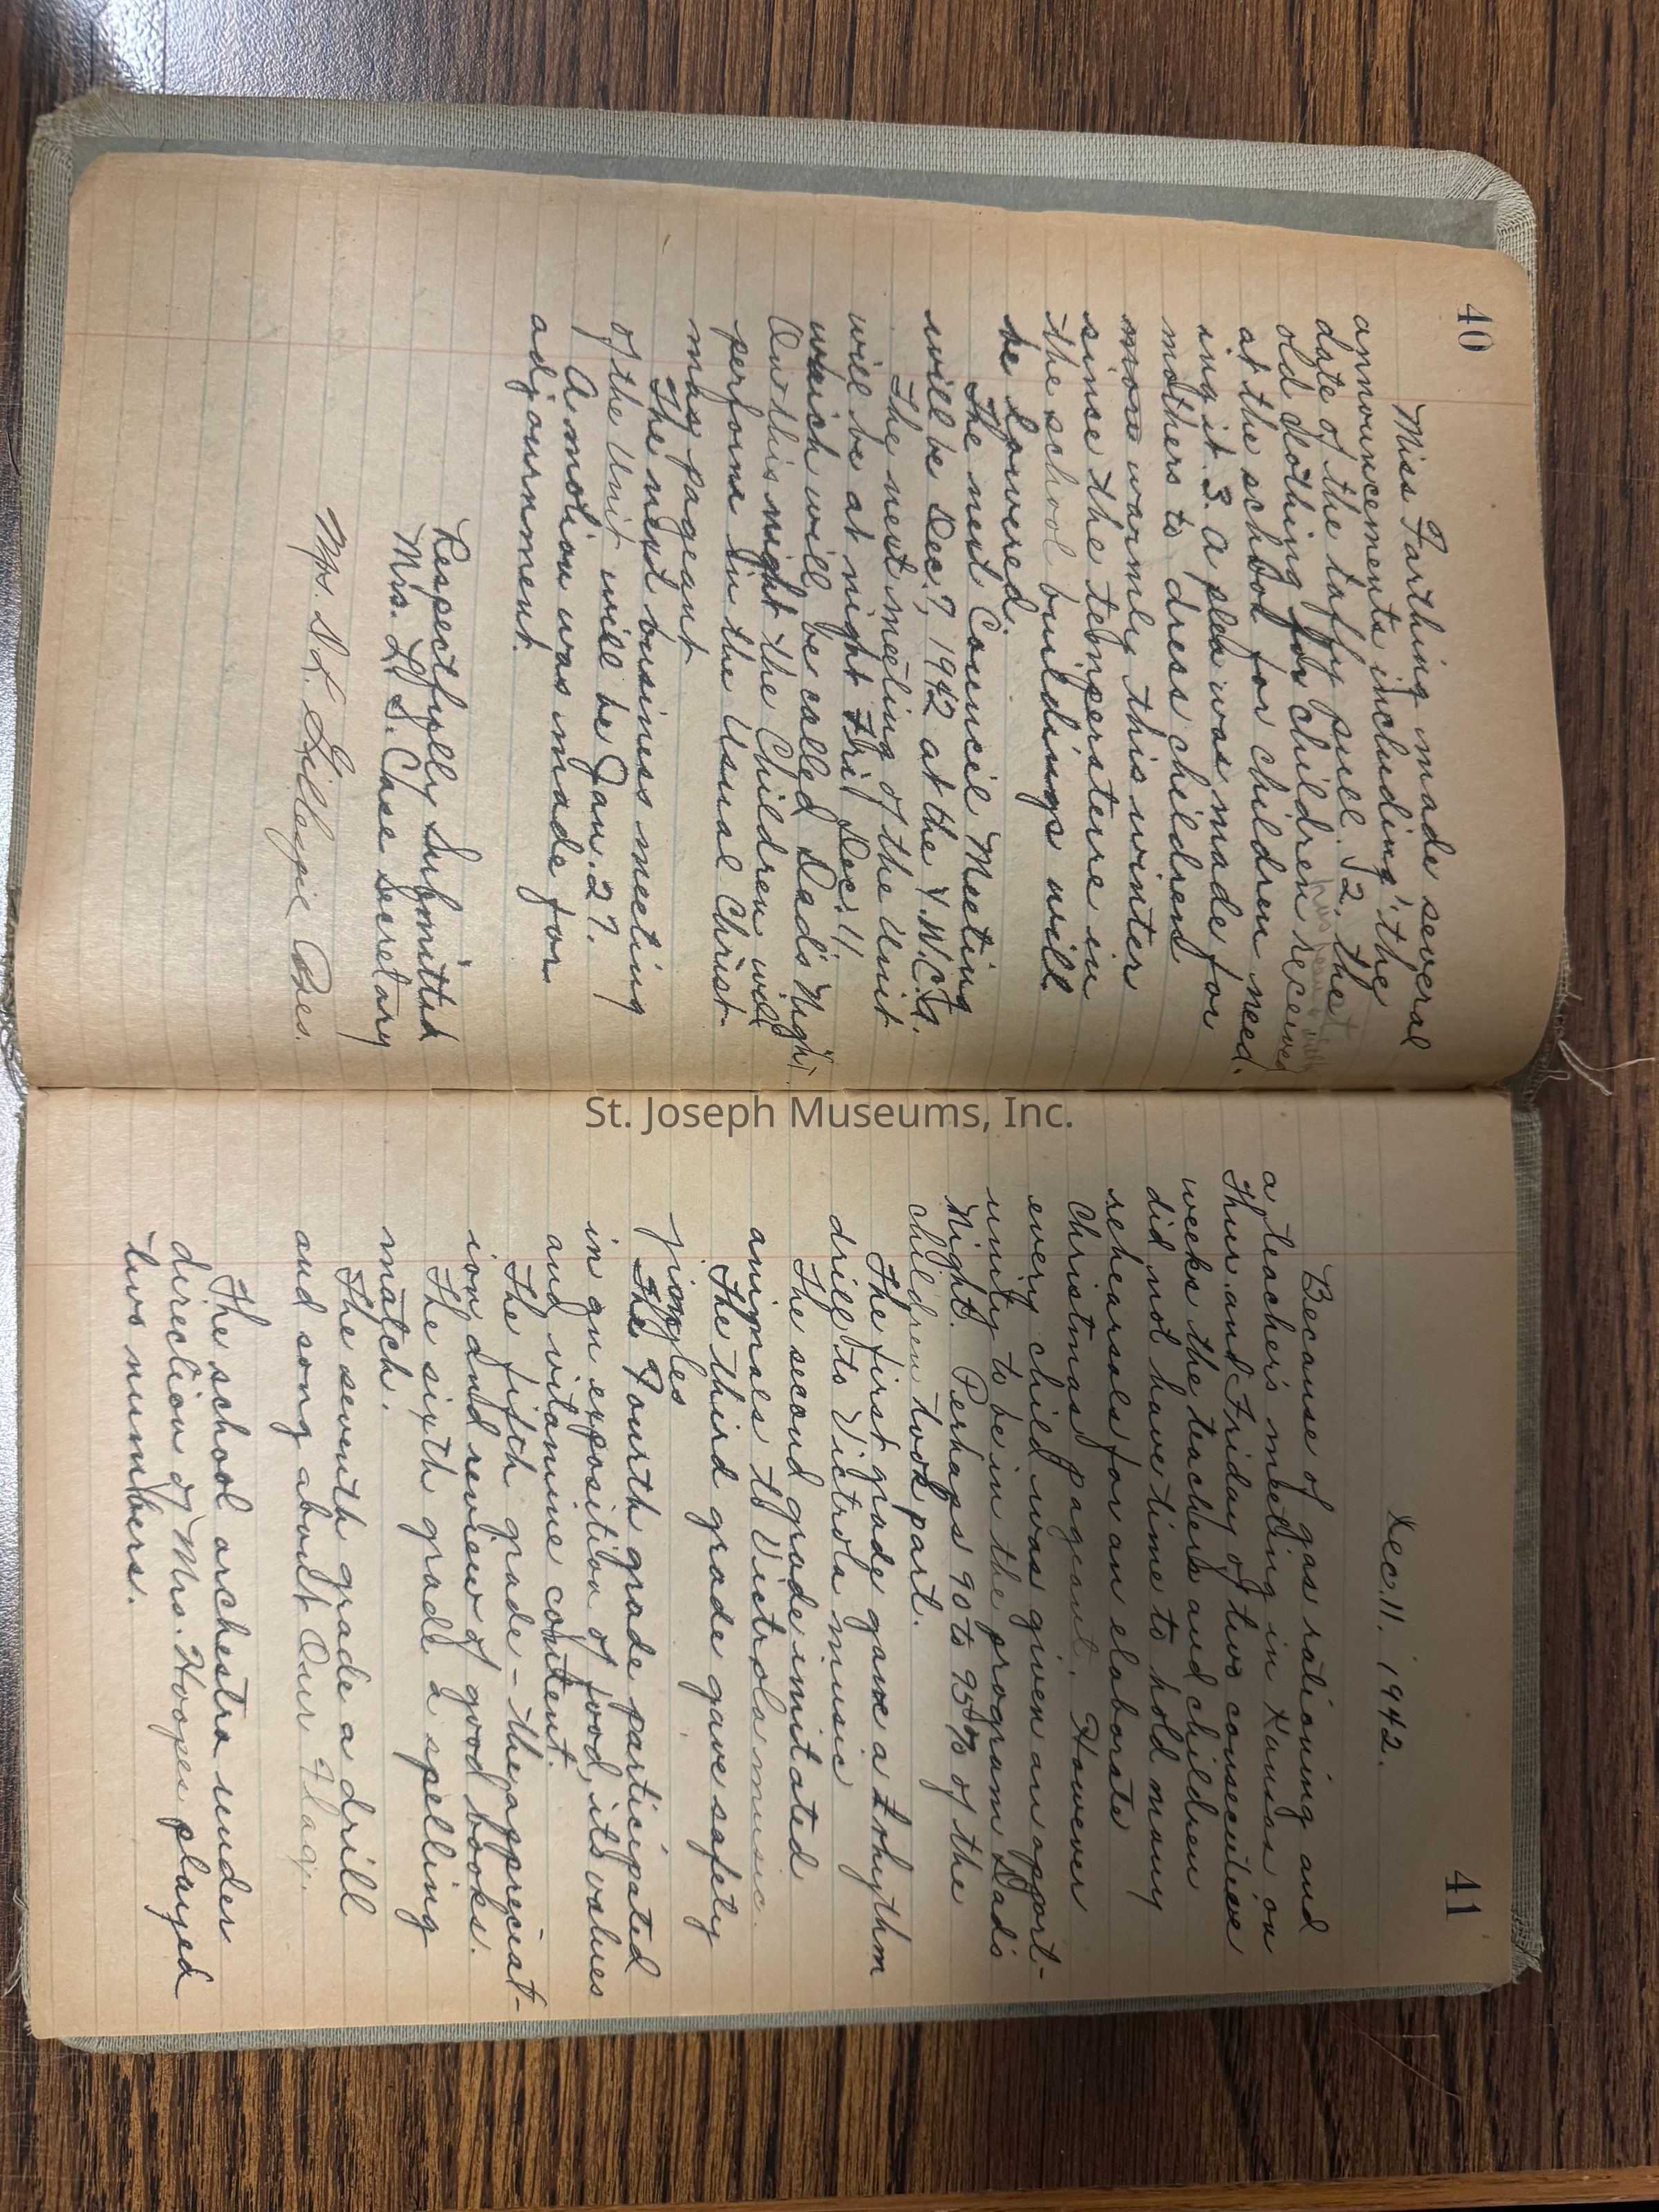 40
Miss Farthing made several
announcements including 1. the
date of the taffy pull. 2. the
old clothing for children has been received
at the school for children need-
ing it. 3. A plea was made for
mothers to dress children
more warmly this winter
sinse the temperature in
the school buildings will
be lowered.
The next Council Meeting
will be Dec. 7, 1942 at the Y.W.C.A.
The next meeting of the Unit
will be at night Fri Dec. 11
which will be called "Dad's Night".
On this night the Children will
perform in the Usual Christ-
mas pageant
The next business meeting
of the Unit will be Jan. 27.
A motion was made for
adjournment.
Respectfully Submitted
Mrs. L. S. Case Secretary
Mrs. D. L. Gillespie Pres.
St. Joseph Museums, Inc.
41
Dec. 11. 1942.
Because of gas rationing and
a teacher's meeting in Kansas on
Thur. and Friday of two consecutive
weeks the teachers and children
did not have time to hold many
rehearsals for an elaborate
Christmas pageant. However
every child was given an opport-
unity to be in the program Dad's
Night. Perhaps 90 to 95% of the
children took part.
The first grade gave a rhythm
drill to Victrola music
The second grade imitated
animals to Victrola music.
The third grade gave safety
jingles
The Fourth grade participated
in an exposition of food, its values
and vitamine content.
The fifth grade - the appreciat-
ion and review of good books.
The sixth grade a spelling
match.
The seventh grade a drill
and song about Our Flag.
The school orchestra under
direction of Mrs. Hooper played
two numbers.